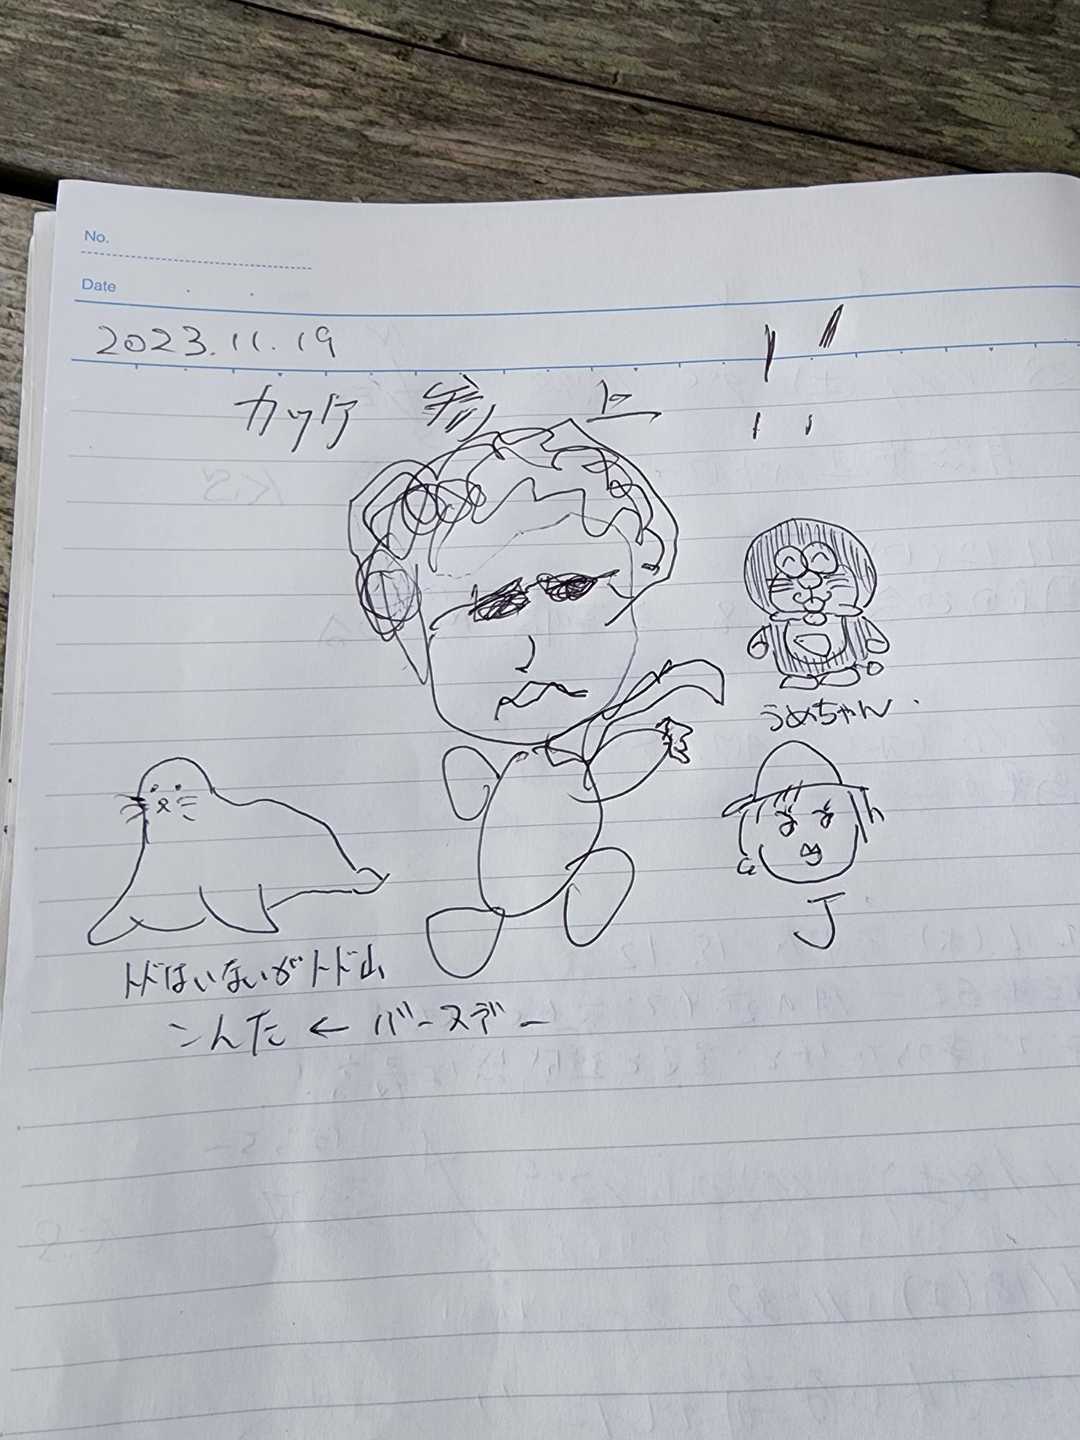 No.
Date
2023.11.19
カッケ 参上 !!
うめちゃん.
J
トドはいないがトド山
こんた ← バースデー